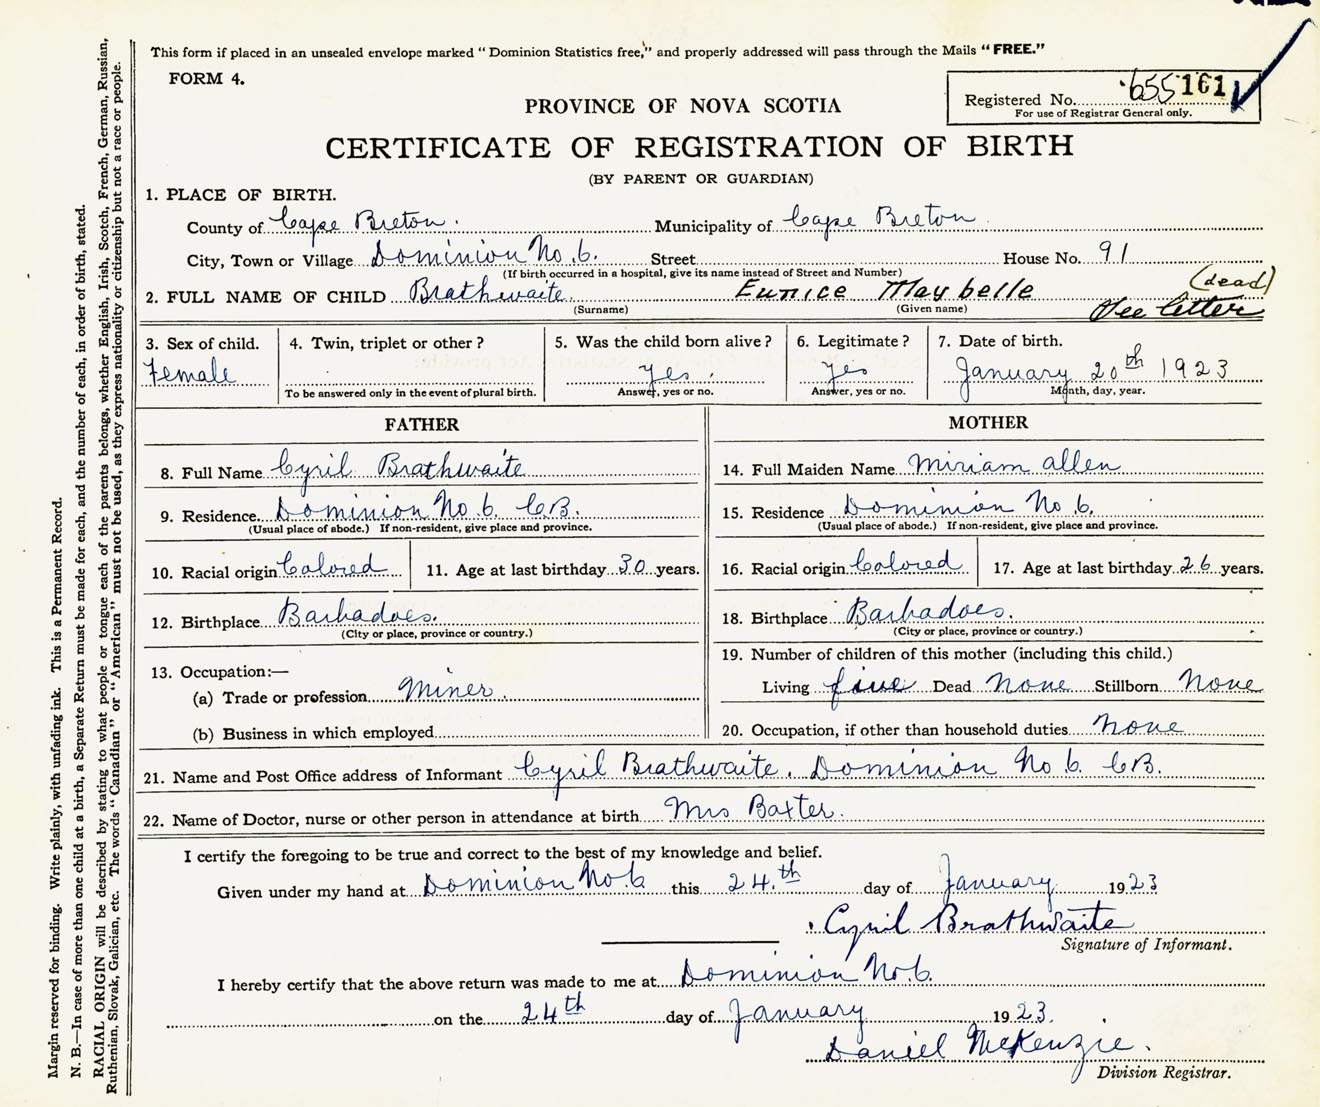 This form if placed in an unsealed envelope marked "Dominion Statistics free," and properly addressed will pass through the Mails "FREE."
FORM 4.
Registered No. 655161
For use of Registrar General only.
PROVINCE OF NOVA SCOTIA
CERTIFICATE OF REGISTRATION OF BIRTH
(BY PARENT OR GUARDIAN)
1. PLACE OF BIRTH.
County of Cape Breton. Municipality of Cape Breton
City, Town or Village Dominion No. 6. Street House No. 91
(If birth occurred in a hospital, give its name instead of Street and Number)
2. FULL NAME OF CHILD Brathwaite. Eunice Maybelle (dead)
See letter
(Surname) (Given name)
3. Sex of child. 4. Twin, triplet or other? 5. Was the child born alive? 6. Legitimate? 7. Date of birth.
Female Yes. Yes January 20th 1923
To be answered only in the event of plural birth. Answer, yes or no. Answer, yes or no. Month, day, year.
FATHER MOTHER
8. Full Name Cyril Brathwaite 14. Full Maiden Name Miriam Allen
9. Residence. Dominion No. 6. C.B. 15. Residence Dominion No. 6.
(Usual place of abode.) If non-resident, give place and province. (Usual place of abode.) If non-resident, give place and province.
10. Racial origin Colored 11. Age at last birthday 30 years. 16. Racial origin Colored 17. Age at last birthday 26 years.
12. Birthplace Barbadoes. 18. Birthplace Barbadoes.
(City or place, province or country.) (City or place, province or country.)
13. Occupation:— 19. Number of children of this mother (including this child.)
(a) Trade or profession Miner. Living five Dead None Stillborn None
(b) Business in which employed 20. Occupation, if other than household duties None
21. Name and Post Office address of Informant Cyril Brathwaite. Dominion No 6. C.B.
22. Name of Doctor, nurse or other person in attendance at birth Mrs Baxter.
I certify the foregoing to be true and correct to the best of my knowledge and belief.
Given under my hand at Dominion No. 6 this 24.th day of January 1923
Cyril Brathwaite
Signature of Informant.
I hereby certify that the above return was made to me at Dominion No 6.
on the 24th day of January 1923.
Daniel McKenzie.
Division Registrar.
Margin reserved for binding. Write plainly, with unfading ink. This is a Permanent Record.
N. B.—In case of more than one child at a birth, a Separate Return must be made for each, and the number of each, in order of birth, stated.
RACIAL ORIGIN will be described by stating to what people or tongue each of the parents belongs, whether English, Irish, Scotch, French, German, Russian,
Ruthenian, Slovak, Galician, etc. The words "Canadian" or "American" must not be used, as they express nationality or citizenship but not a race or people.